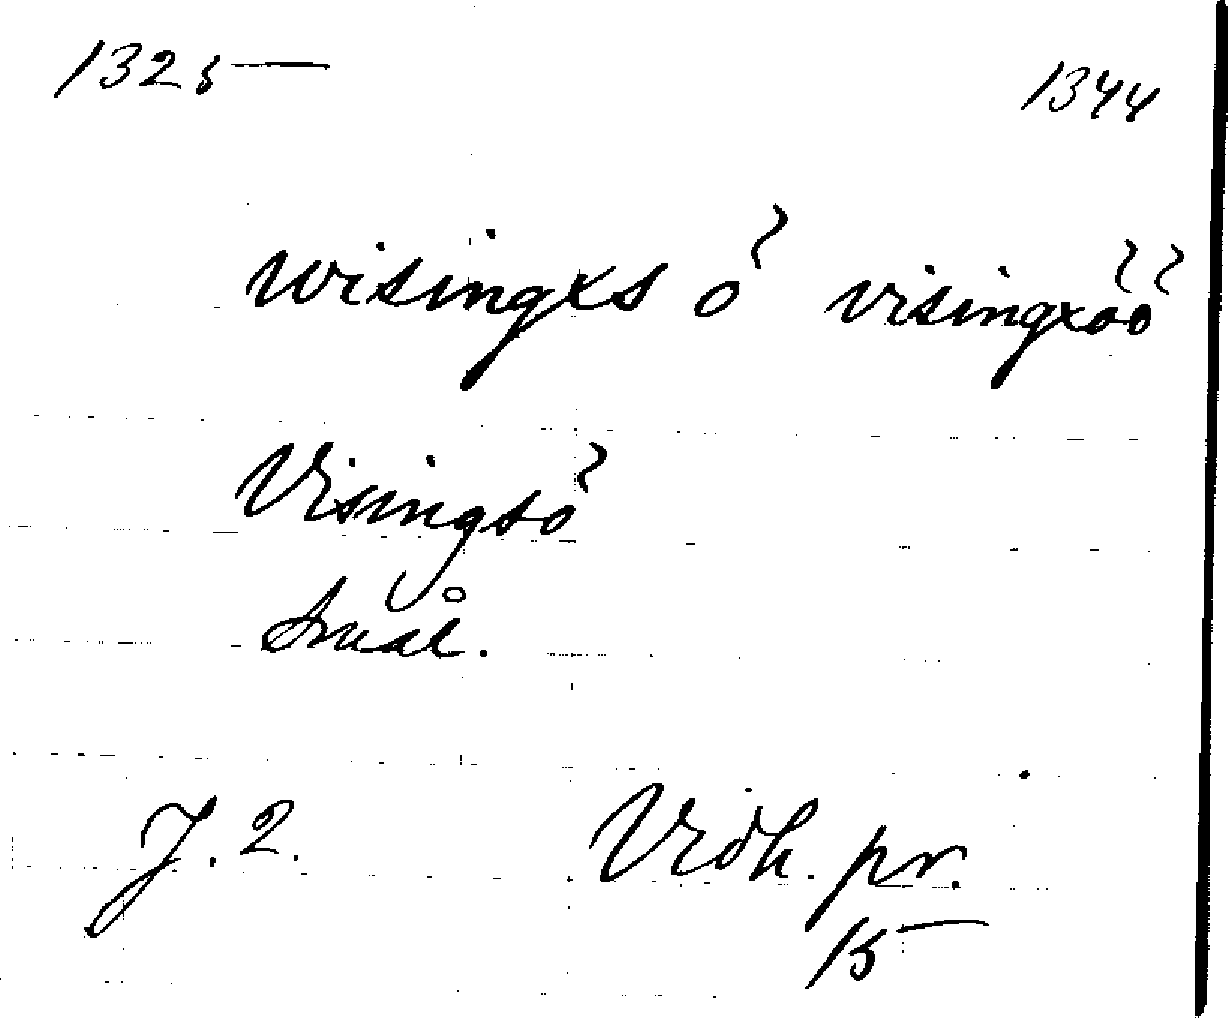 1325 1344
wisingxs ö visingxöö
Visingsö
Smål.
J. 2. Vidh. pr.
15